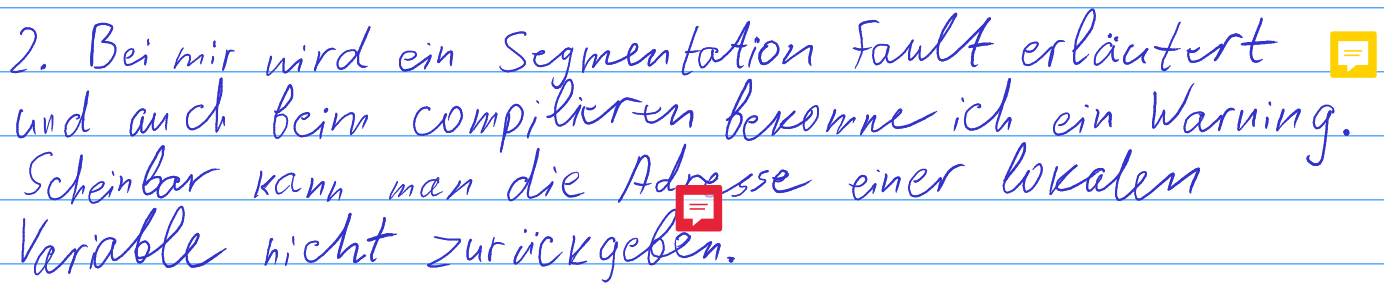 2. Bei mir wird ein Segmentation Fault erläutert
und auch beim compilieren bekomme ich ein Warning.
Scheinbar kann man die Adresse einer lokalen
Variable nicht zurückgeben.